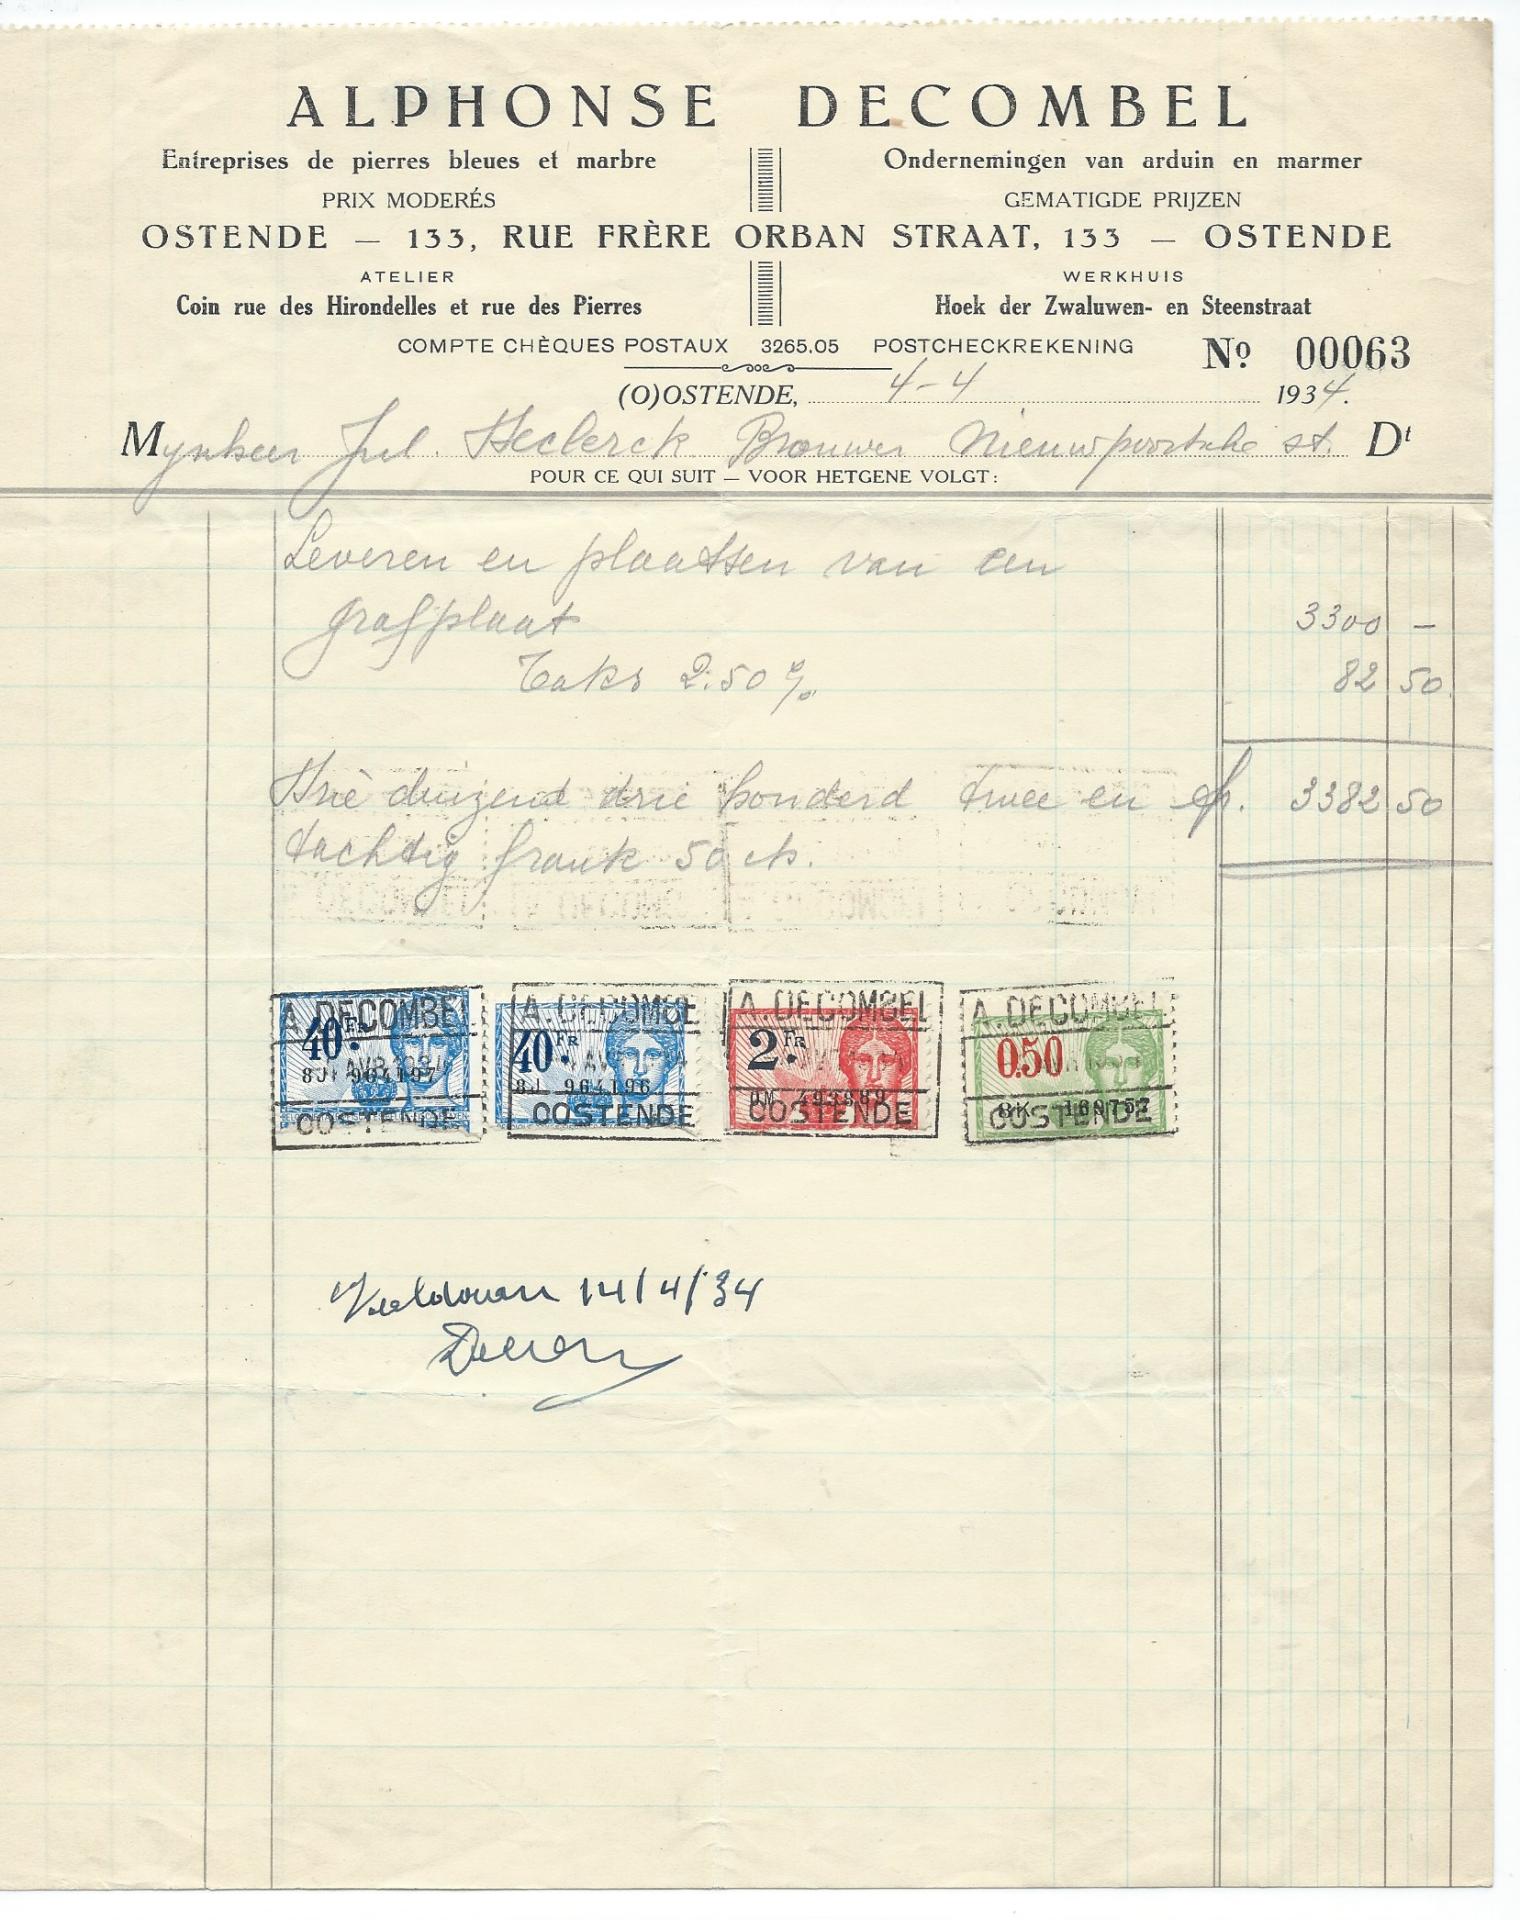 ALPHONSE DECOMBEL
Entreprises de pierres bleues et marbre
Ondernemingen van arduin en marmer
PRIX MODERÉS
GEMATIGDE PRIJZEN
OSTENDE — 133, RUE FRÈRE ORBAN STRAAT, 133 — OSTENDE
ATELIER
WERKHUIS
Coin rue des Hirondelles et rue des Pierres
Hoek der Zwaluwen- en Steenstraat
COMPTE CHÈQUES POSTAUX 3265.05 POSTCHECKREKENING
Nº 00063
(O)OSTENDE, 4-4 1934.
Mynheer Jul. Declerck Brouwer Nieuwpoortsche st. Dt
POUR CE QUI SUIT — VOOR HETGENE VOLGT:
Leveren en plaatsen van een
grafplaat 3300 –
Taks 2.50 % 82 50
Drie duizend drie honderd twee en fr. 3382 50
tachtig frank 50 cts.
A. DECOMBEL
40 Fr
8J 964197
OOSTENDE
A. DECOMBEL
40 FR
8J 964196
OOSTENDE
A. DECOMBEL
2 Fr
OOSTENDE
A. DECOMBEL
0.50
8K 160757
OOSTENDE
Voldaan 14/4/34